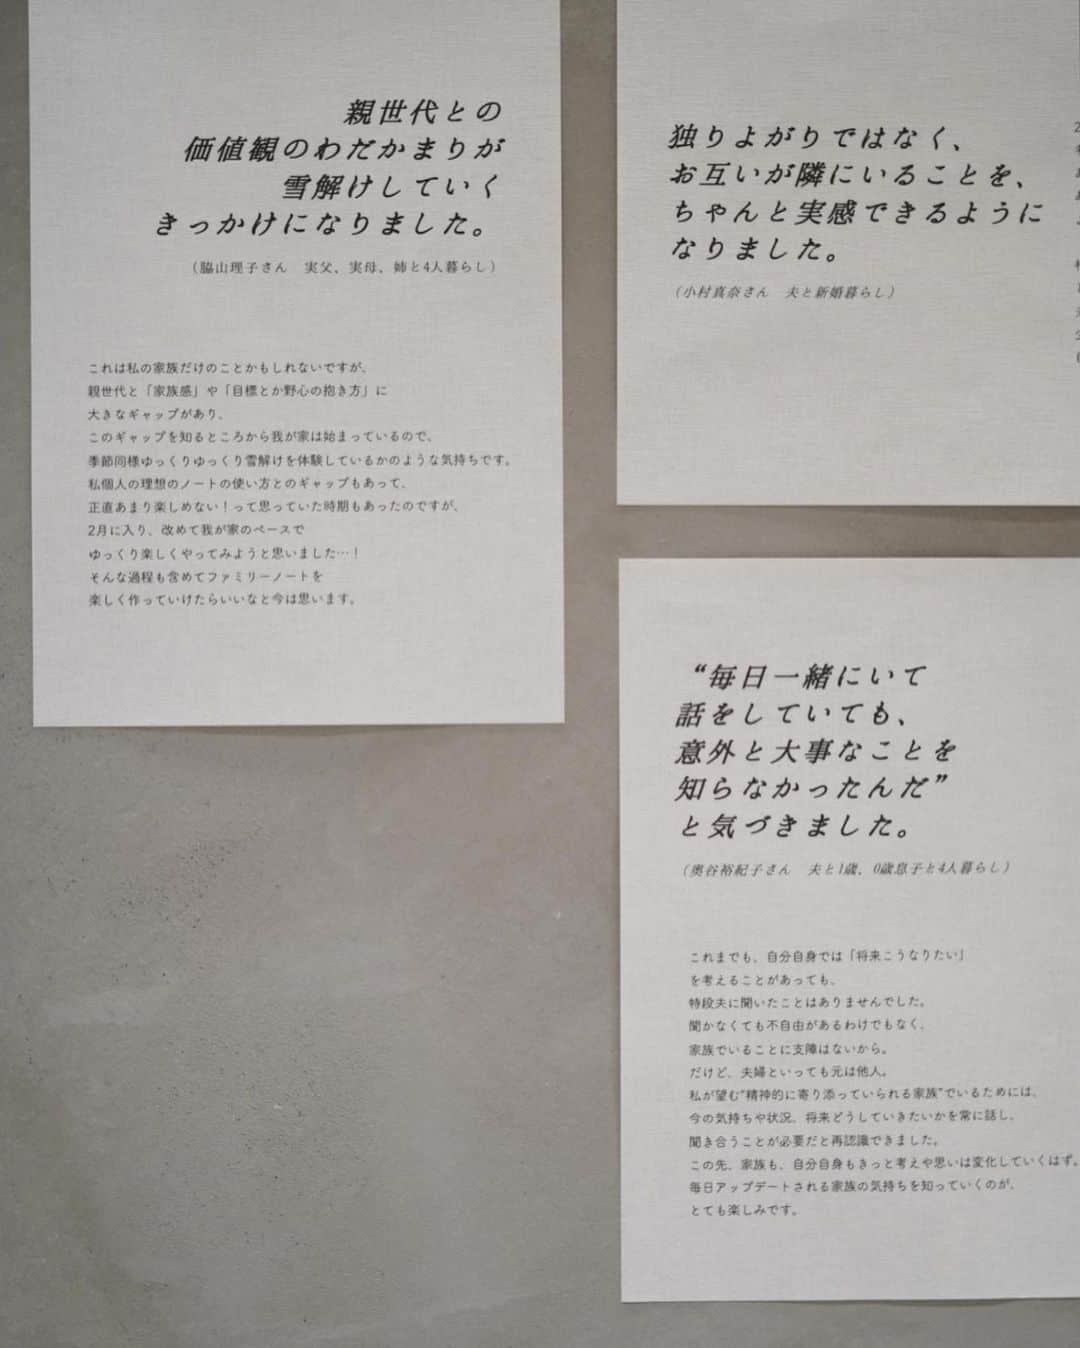 親世代との
価値観のわだかまりが
雪解けしていく
きっかけになりました。
（脇山理子さん　実父、実母、姉と4人暮らし）
これは私の家族だけのことかもしれないですが、
親世代と「家族感」や「目標とか野心の抱き方」に
大きなギャップがあり、
このギャップを知るところから我が家は始まっているので、
季節同様ゆっくりゆっくり雪解けを体験しているかのような気持ちです。
私個人の理想のノートの使い方とのギャップもあって、
正直あまり楽しめない！って思っていた時期もあったのですが、
2月に入り、改めて我が家のペースで
ゆっくり楽しくやってみようと思いました…！
そんな過程も含めてファミリーノートを
楽しく作っていけたらいいなと今は思います。
独りよがりではなく、
お互いが隣にいることを、
ちゃんと実感できるように
なりました。
（小村真奈さん　夫と新婚暮らし）
“毎日一緒にいて
話をしていても、
意外と大事なことを
知らなかったんだ”
と気づきました。
（奥谷裕紀子さん　夫と1歳、0歳息子と4人暮らし）
これまでも、自分自身では「将来こうなりたい」
を考えることがあっても、
特段夫に聞いたことはありませんでした。
聞かなくても不自由があるわけでもなく、
家族でいることに支障はないから。
だけど、夫婦といっても元は他人。
私が望む“精神的に寄り添っていられる家族”でいるためには、
今の気持ちや状況、将来どうしていきたいかを常に話し、
聞き合うことが必要だと再認識できました。
この先、家族も、自分自身もきっと考えや思いは変化していくはず。
毎日アップデートされる家族の気持ちを知っていくのが、
とても楽しみです。